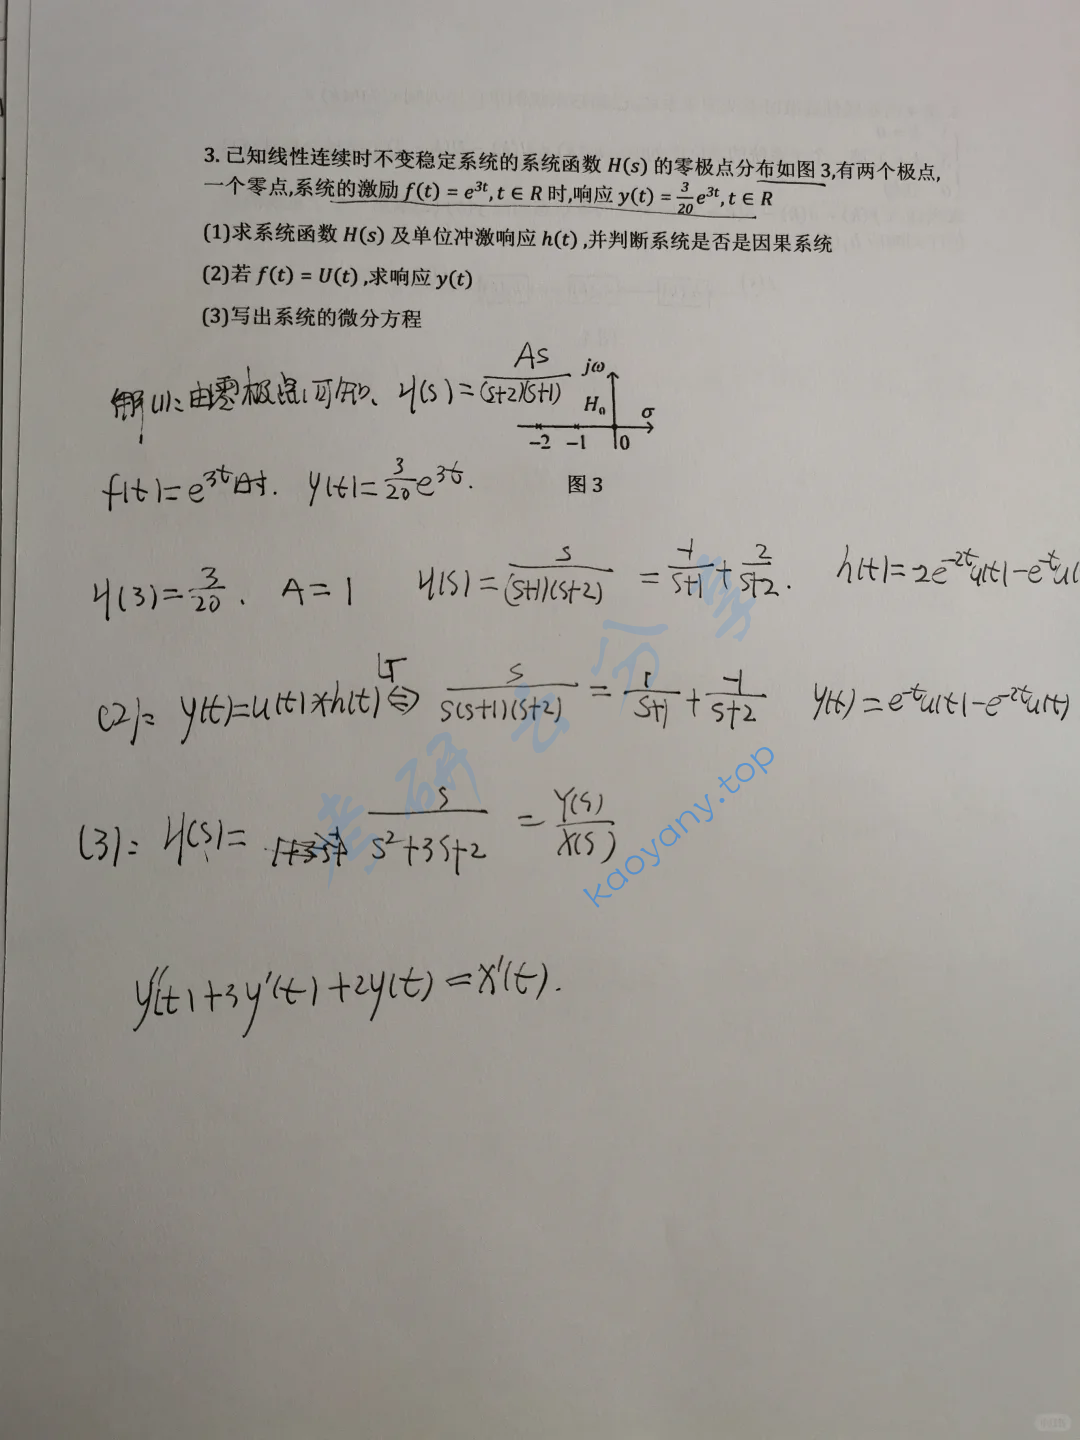 3. 已知线性连续时不变稳定系统的系统函数 H(s) 的零极点分布如图 3,有两个极点,
一个零点,系统的激励 f(t) = e^{3t}, t ∈ R 时,响应 y(t) = \frac{3}{20}e^{3t}, t ∈ R
(1)求系统函数 H(s) 及单位冲激响应 h(t) ,并判断系统是否是因果系统
(2)若 f(t) = U(t) ,求响应 y(t)
(3)写出系统的微分方程
解(1): 由零极点可知、 H(s) = \frac{As}{(s+2)(s+1)}
jω
H₀
σ
-2 -1 0
图 3
f(t)=e^{3t}时. y(t)=\frac{3}{20}e^{3t}.
H(3)=\frac{3}{20}. A=1 H(s)=\frac{s}{(s+1)(s+2)} = \frac{-1}{s+1}+\frac{2}{s+2}. h(t)=2e^{-2t}u(t)-e^{-t}u(
(2): y(t)=u(t)*h(t) \overset{LT}{⇔} \frac{s}{s(s+1)(s+2)} = \frac{1}{s+1}+\frac{-1}{s+2} y(t)=e^{-t}u(t)-e^{-2t}u(t)
(3): H(s)= \frac{s}{s²+3s+2} = \frac{Y(s)}{X(s)}
y''(t)+3y'(t)+2y(t)=x'(t).
考研云分享
kaoyany.top